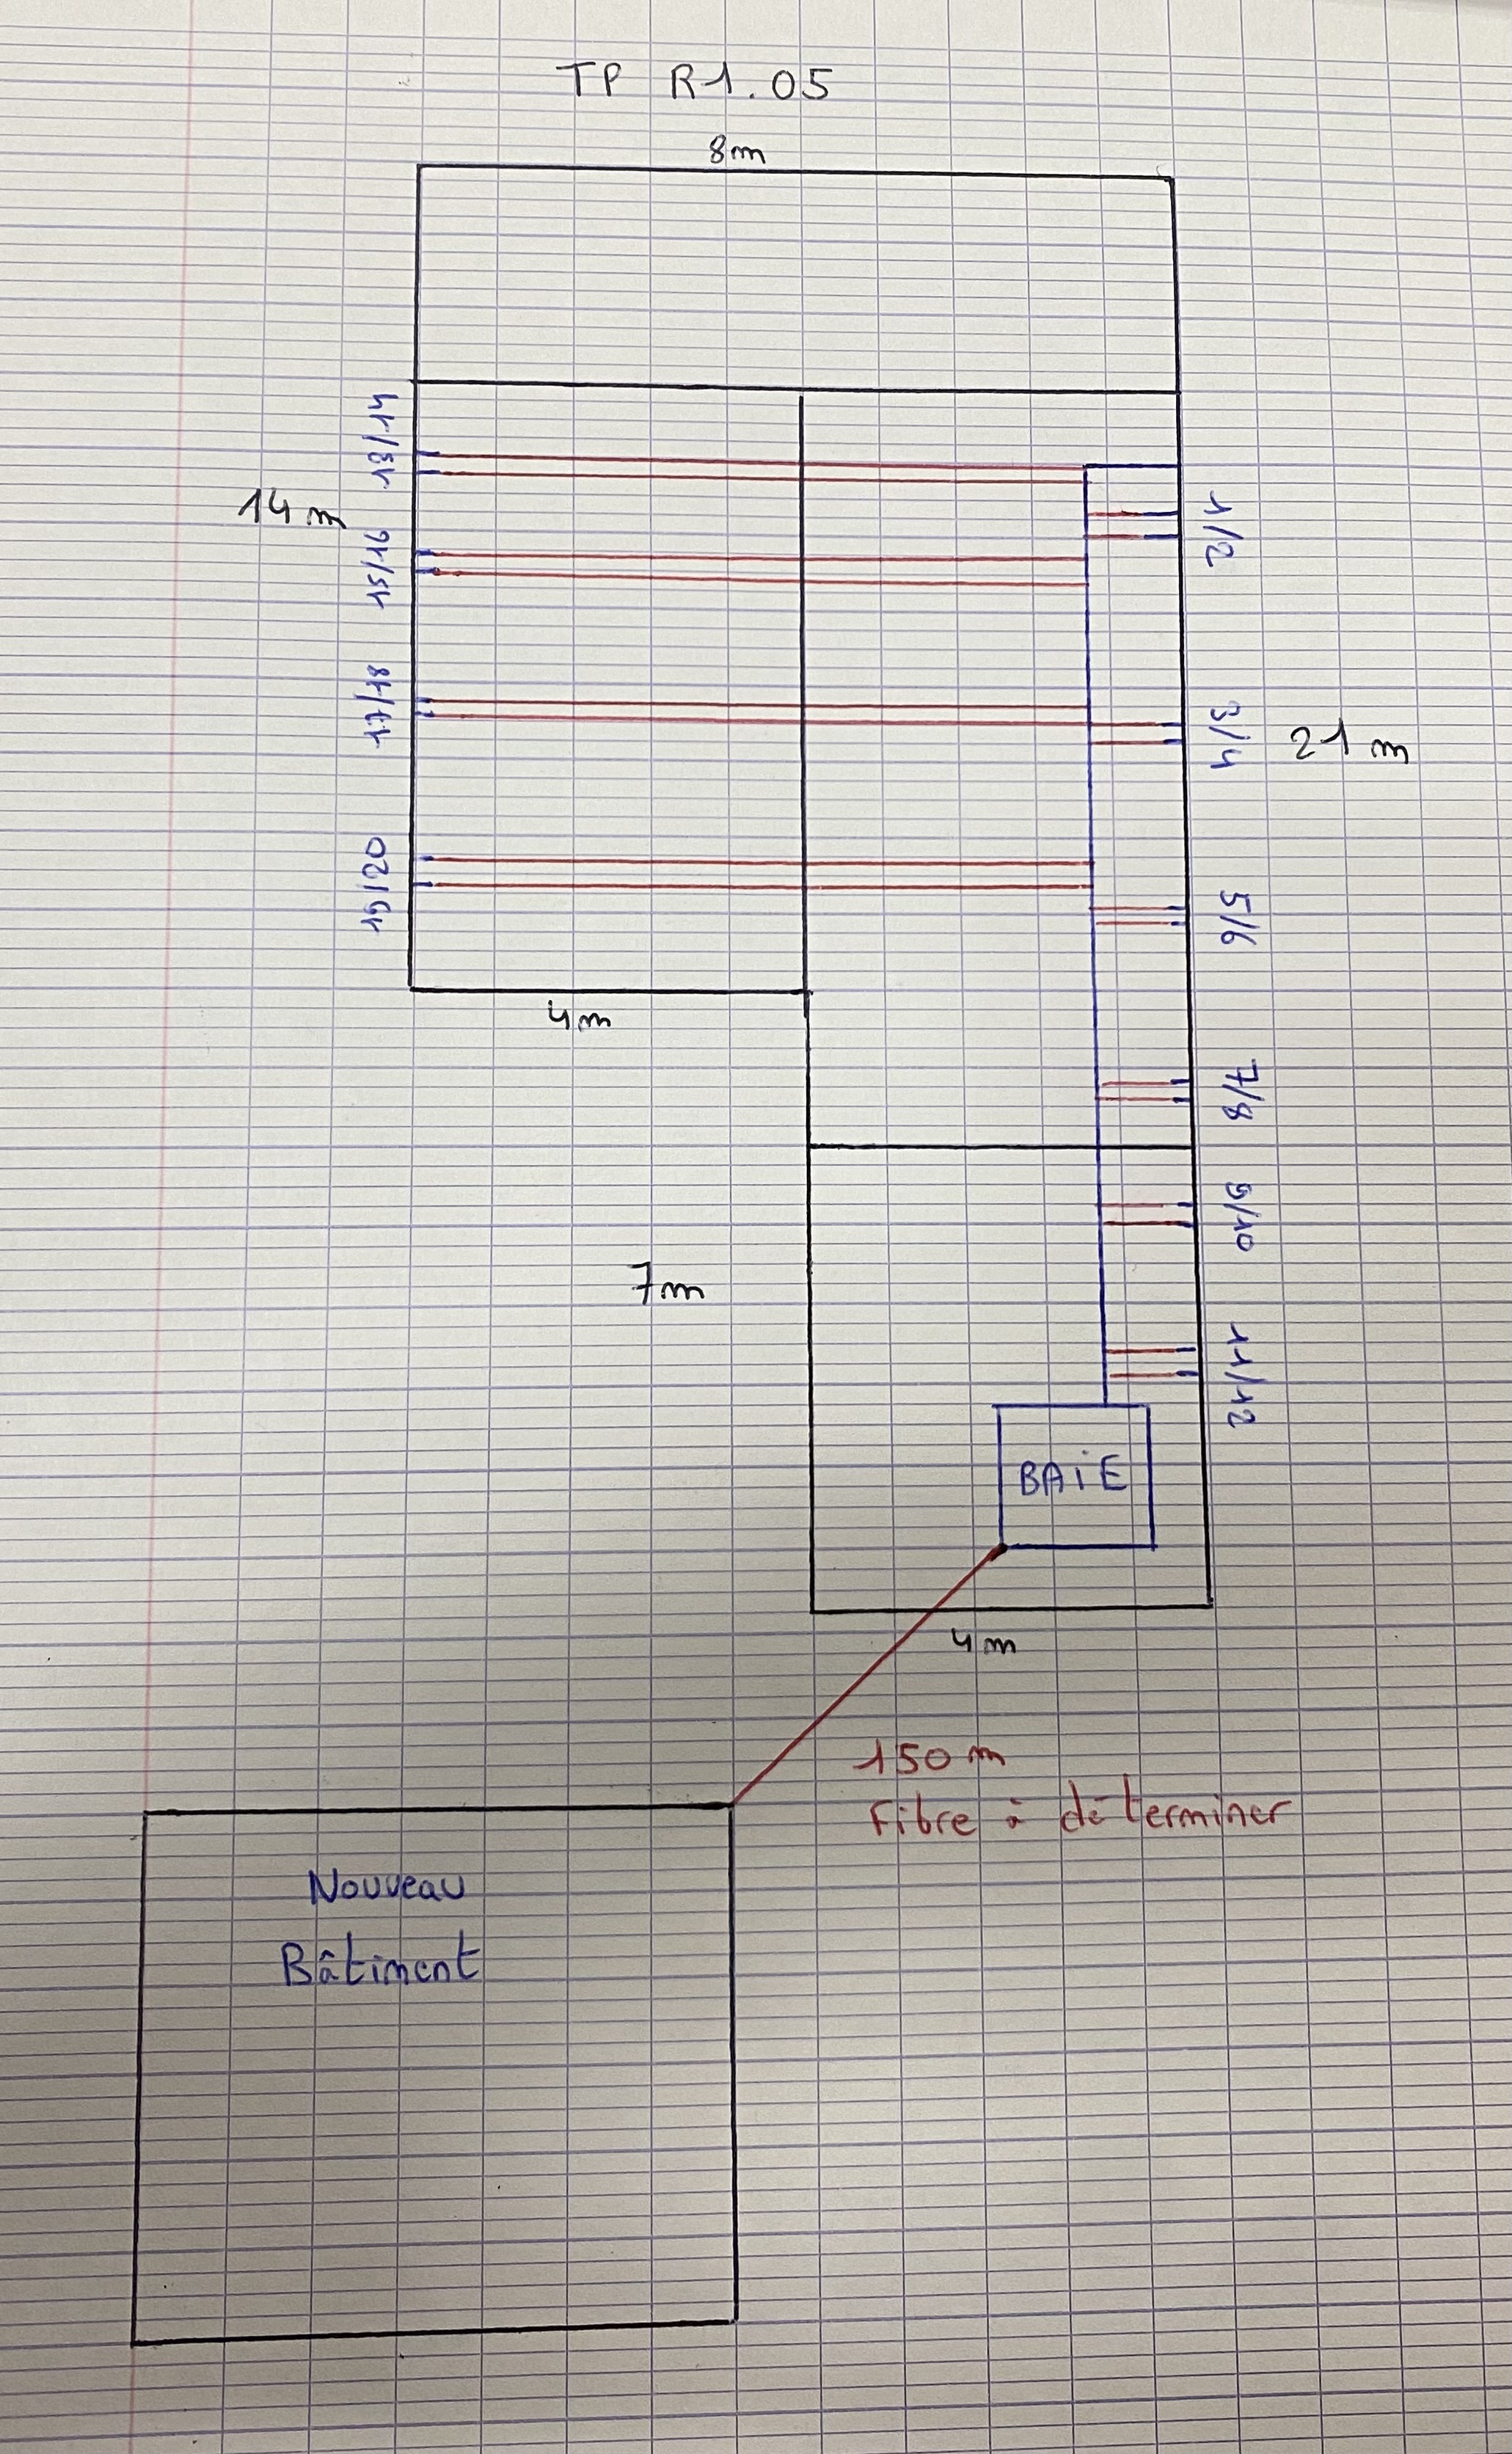 TP R1.05
8m
13/14
14 m
1/2
15/16
17/18
3/4
21 m
19/20
5/6
4m
7/8
9/10
7m
11/12
BAiE
4m
150 m
Fibre à déterminer
Nouveau
Bâtiment